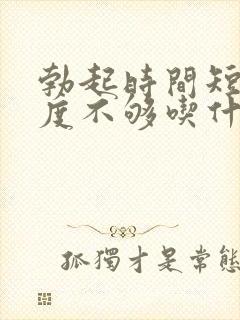 勃起時間短
度不够喫什
孤獨才是常態